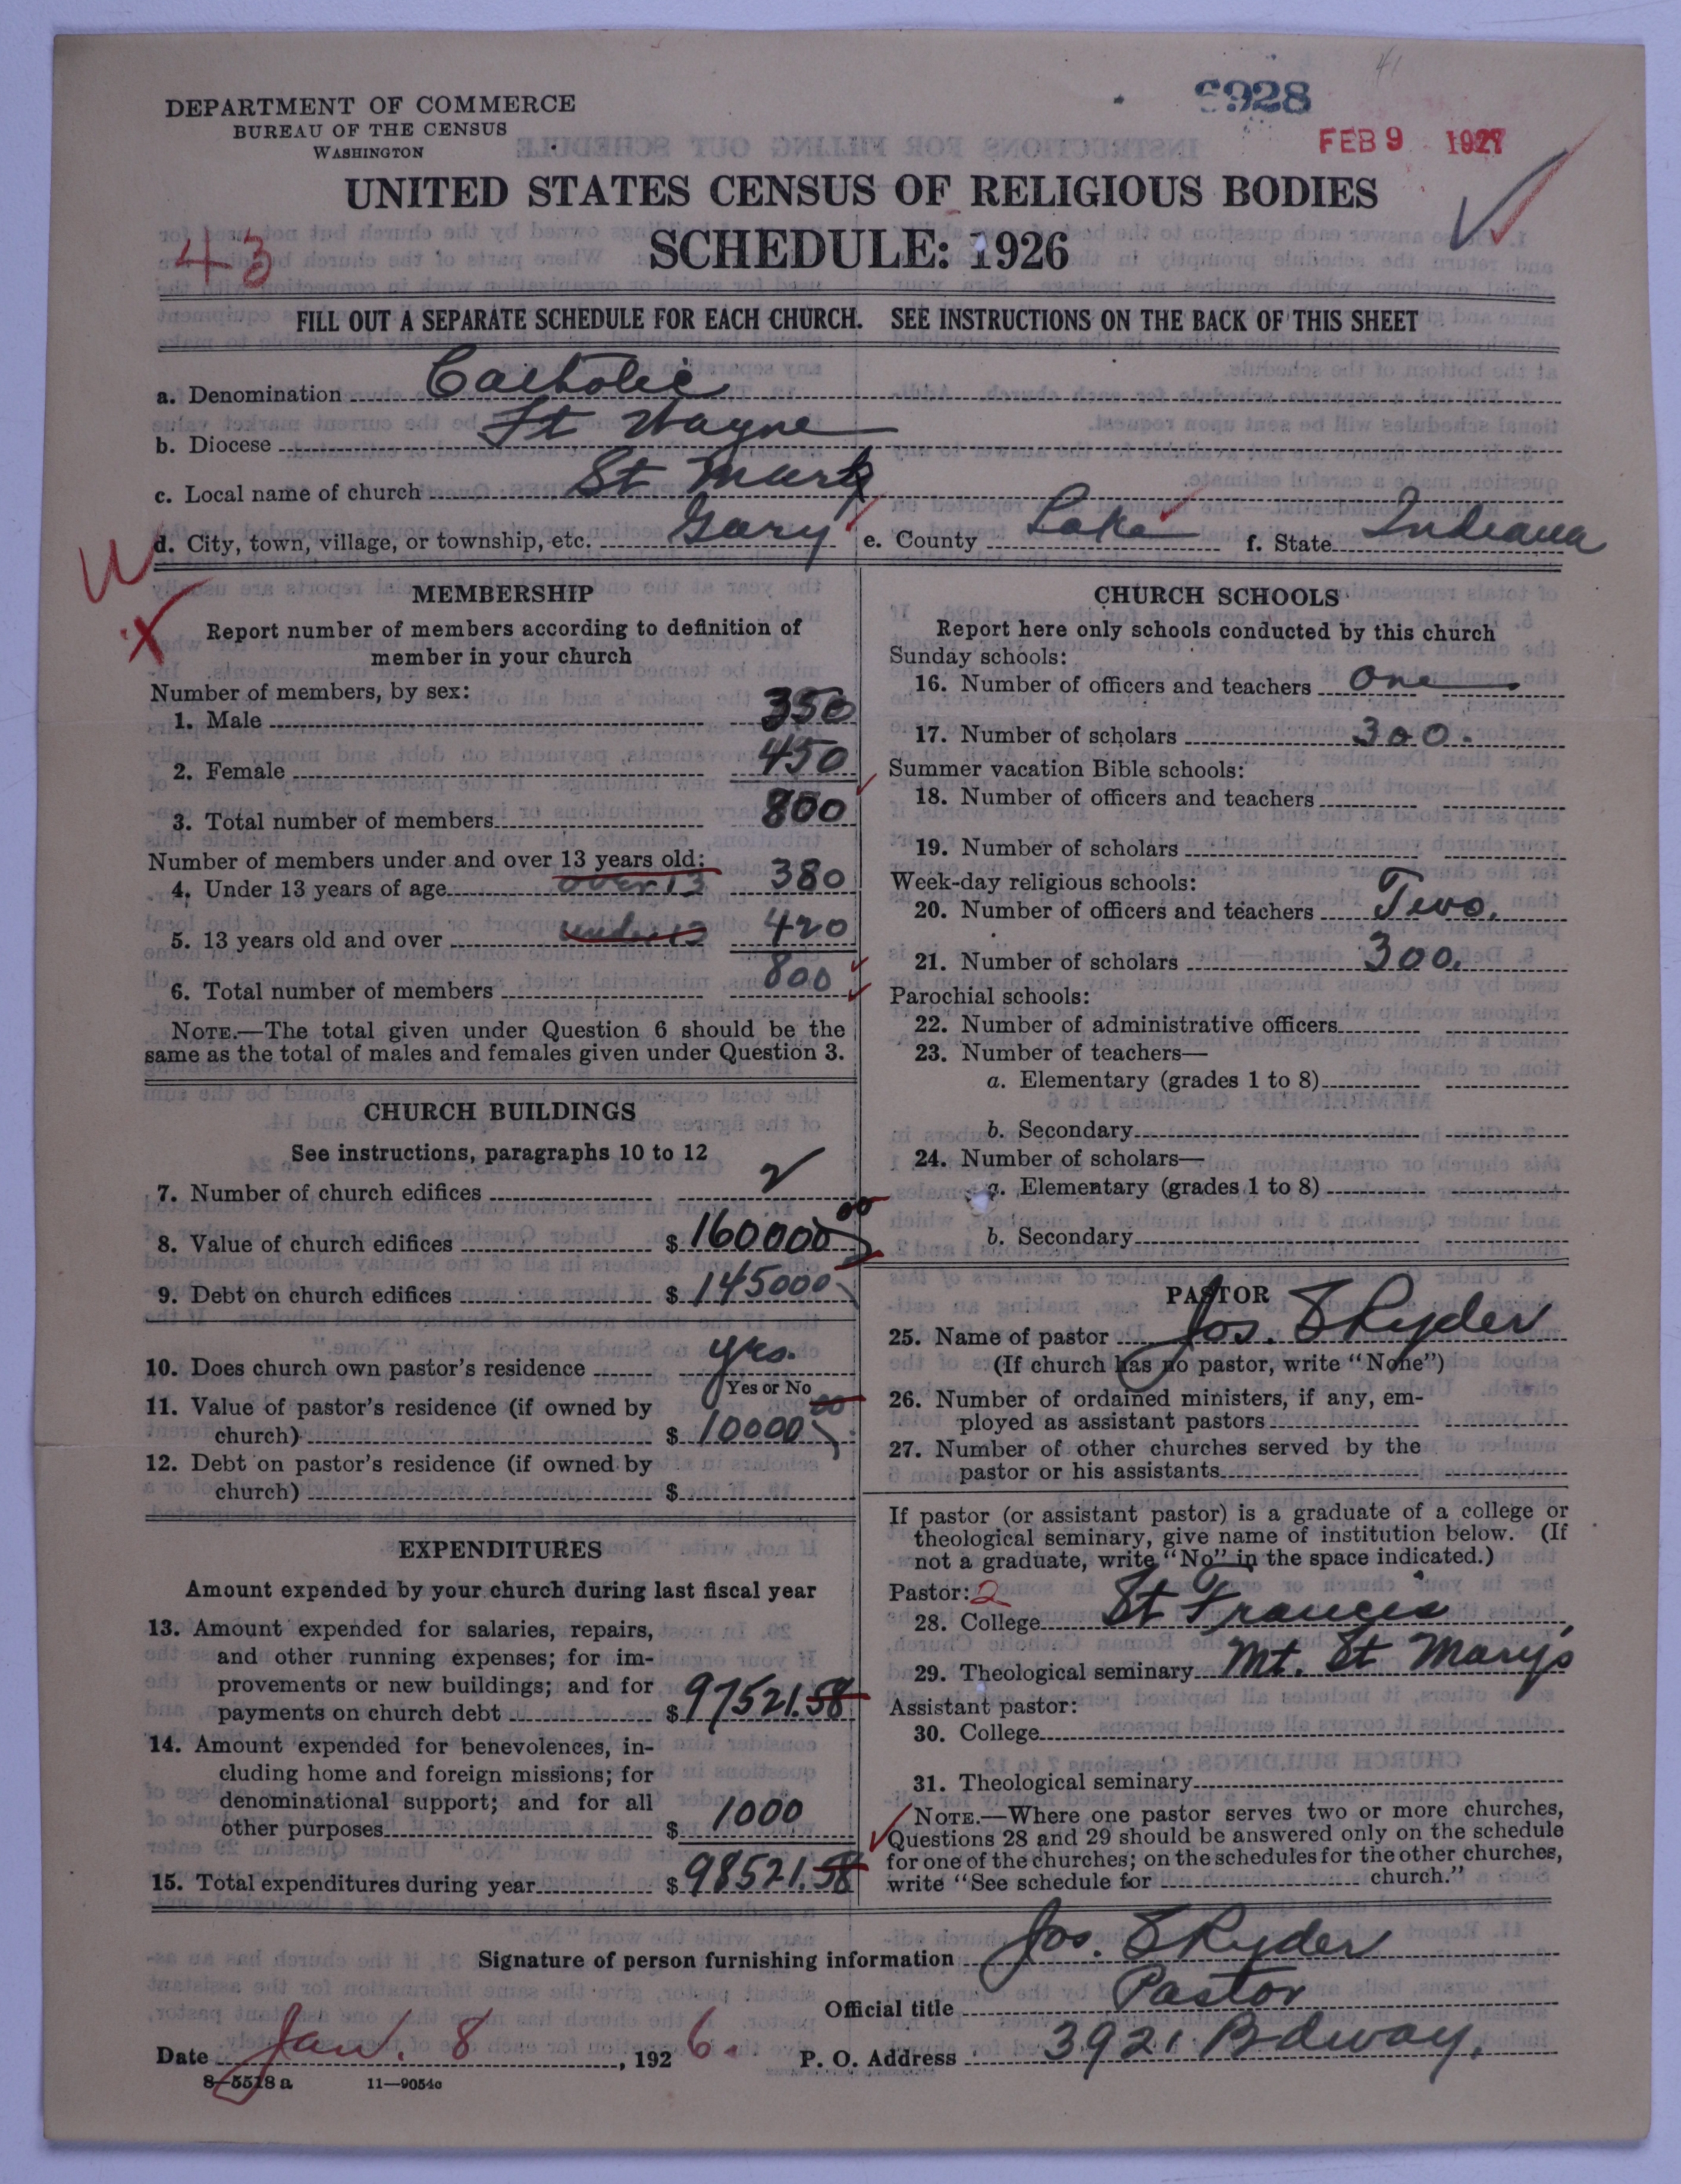 6928
FEB 9 1927
DEPARTMENT OF COMMERCE
BUREAU OF THE CENSUS
WASHINGTON
UNITED STATES CENSUS OF RELIGIOUS BODIES
43
SCHEDULE: 1926
FILL OUT A SEPARATE SCHEDULE FOR EACH CHURCH. SEE INSTRUCTIONS ON THE BACK OF THIS SHEET
a. Denomination Catholic
b. Diocese Ft Wayne
c. Local name of church St Marks
d. City, town, village, or township, etc. Gary e. County Lake f. State Indiana
W
X
MEMBERSHIP
Report number of members according to definition of
member in your church
Number of members, by sex:
1. Male 350
2. Female 450
3. Total number of members 800
Number of members under and over 13 years old:
4. Under 13 years of age over 13 380
5. 13 years old and over under 13 420
6. Total number of members 800
NOTE.—The total given under Question 6 should be the
same as the total of males and females given under Question 3.
CHURCH BUILDINGS
See instructions, paragraphs 10 to 12
7. Number of church edifices 2
8. Value of church edifices $ 160000 00
9. Debt on church edifices $ 145000
10. Does church own pastor's residence yes.
Yes or No
11. Value of pastor's residence (if owned by
church) $ 10000 00
12. Debt on pastor's residence (if owned by
church) $
EXPENDITURES
Amount expended by your church during last fiscal year
13. Amount expended for salaries, repairs,
and other running expenses; for im-
provements or new buildings; and for
payments on church debt $ 97521.58
14. Amount expended for benevolences, in-
cluding home and foreign missions; for
denominational support; and for all
other purposes $ 1000
15. Total expenditures during year $ 98521.58
CHURCH SCHOOLS
Report here only schools conducted by this church
Sunday schools:
16. Number of officers and teachers One
17. Number of scholars 300.
Summer vacation Bible schools:
18. Number of officers and teachers
19. Number of scholars
Week-day religious schools:
20. Number of officers and teachers Two.
21. Number of scholars 300.
Parochial schools:
22. Number of administrative officers
23. Number of teachers—
a. Elementary (grades 1 to 8)
b. Secondary
24. Number of scholars—
a. Elementary (grades 1 to 8)
b. Secondary
PASTOR
25. Name of pastor Jos. S Ryder
(If church has no pastor, write "None")
26. Number of ordained ministers, if any, em-
ployed as assistant pastors
27. Number of other churches served by the
pastor or his assistants
If pastor (or assistant pastor) is a graduate of a college or
theological seminary, give name of institution below. (If
not a graduate, write "No" in the space indicated.)
Pastor: 2
28. College St Francis
29. Theological seminary Mt. St Mary's
Assistant pastor:
30. College
31. Theological seminary
NOTE.—Where one pastor serves two or more churches,
Questions 28 and 29 should be answered only on the schedule
for one of the churches; on the schedules for the other churches,
write "See schedule for church."
Signature of person furnishing information Jos. S Ryder
Official title Pastor
Date Jan. 8, 1926. P. O. Address 3921 Bdway.
8—5518 a 11—9054c